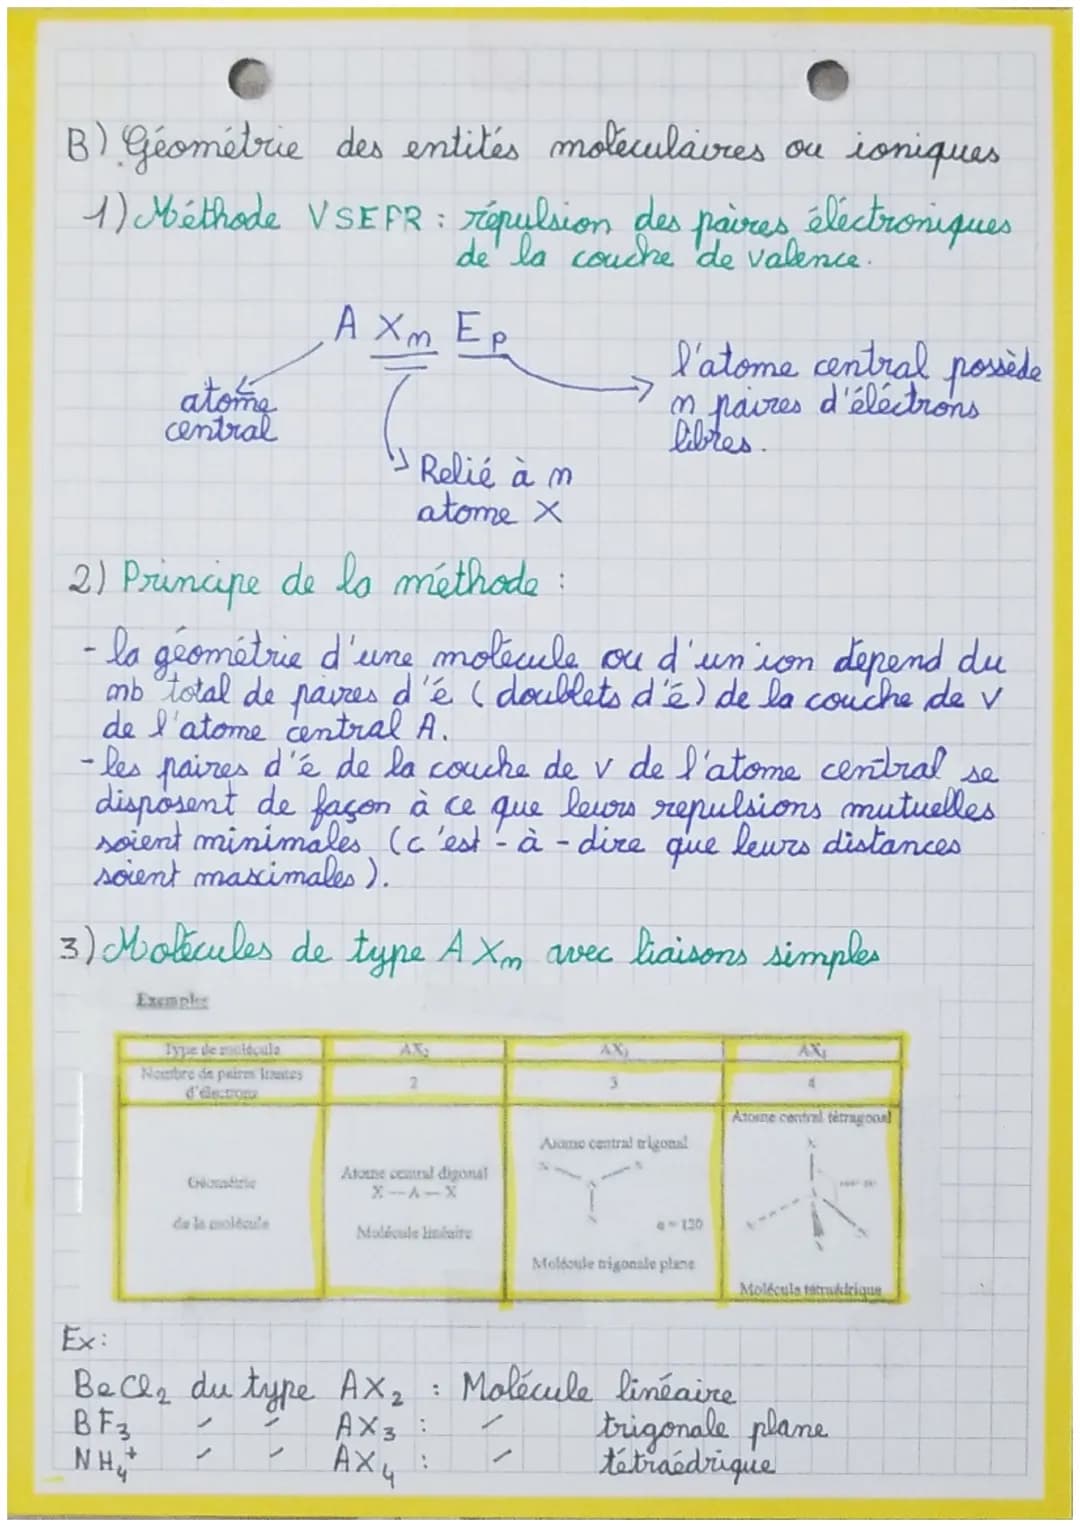 B) Géométrie des entités moléculaires ou ioniques
1) Méthode VSEPR : répulsion des paires éléctroniques
de la couche de valence.
A Xm Ep
atome
central
Relié à m
atome X
l'atome central possède
n paires d'éléctrons
libres.
2) Principe de la méthode :
- la géométrie d'une molécule ou d'un ion dépend du
nb total de paires d'é (doublets d'é) de la couche de v
de l'atome central A.
- les paires d'é de la couche de v de l'atome central se
disposent de façon à ce que leurs repulsions mutuelles
soient minimales (c'est-à-dire que leurs distances
soient maximales).
3) Molécules de type AXm avec liaisons simples
Exemples
Type de molécule AX2 AX3 AX4
Nombre de paires liantes
d'électrons 2 3 4
Géométrie
de la molécule
Atome central digonal
X—A—X
Molécule linéaire
Atome central trigonal
α = 120
Molécule trigonale plane
Atome central tétragonal
Molécule tétraédrique
Ex:
BeCl2 du type AX2 : Molécule linéaire
BF3 - - AX3 : - trigonale plane
NH4+ - - AX4 : - tétraédrique